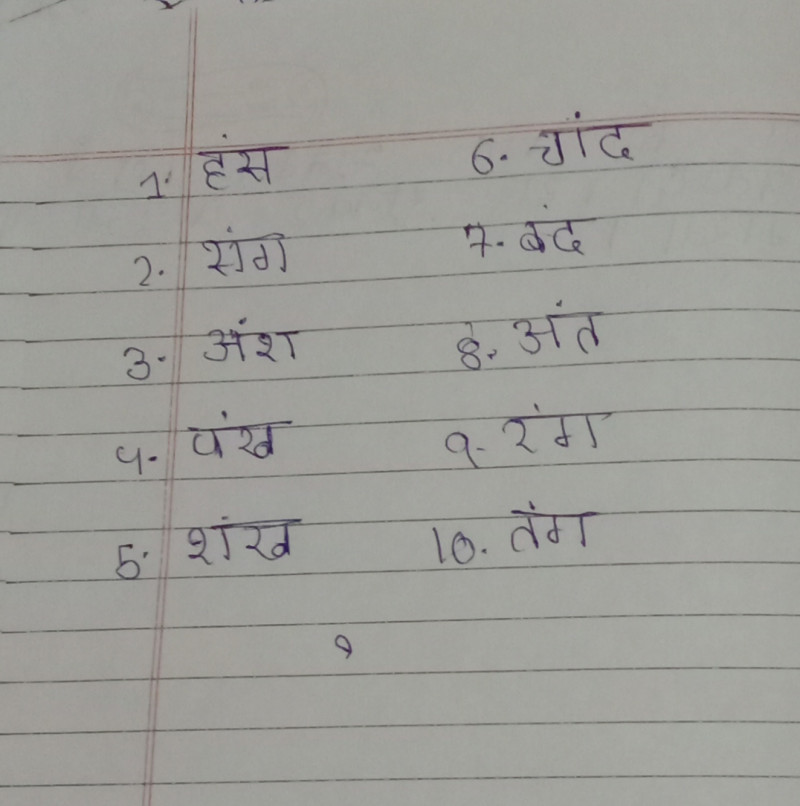 1. हंस
2. संग
3. अंश
4. पंख
5. शंख
6. चांद
7. बंद
8. अंत
9. रंग
10. तंग